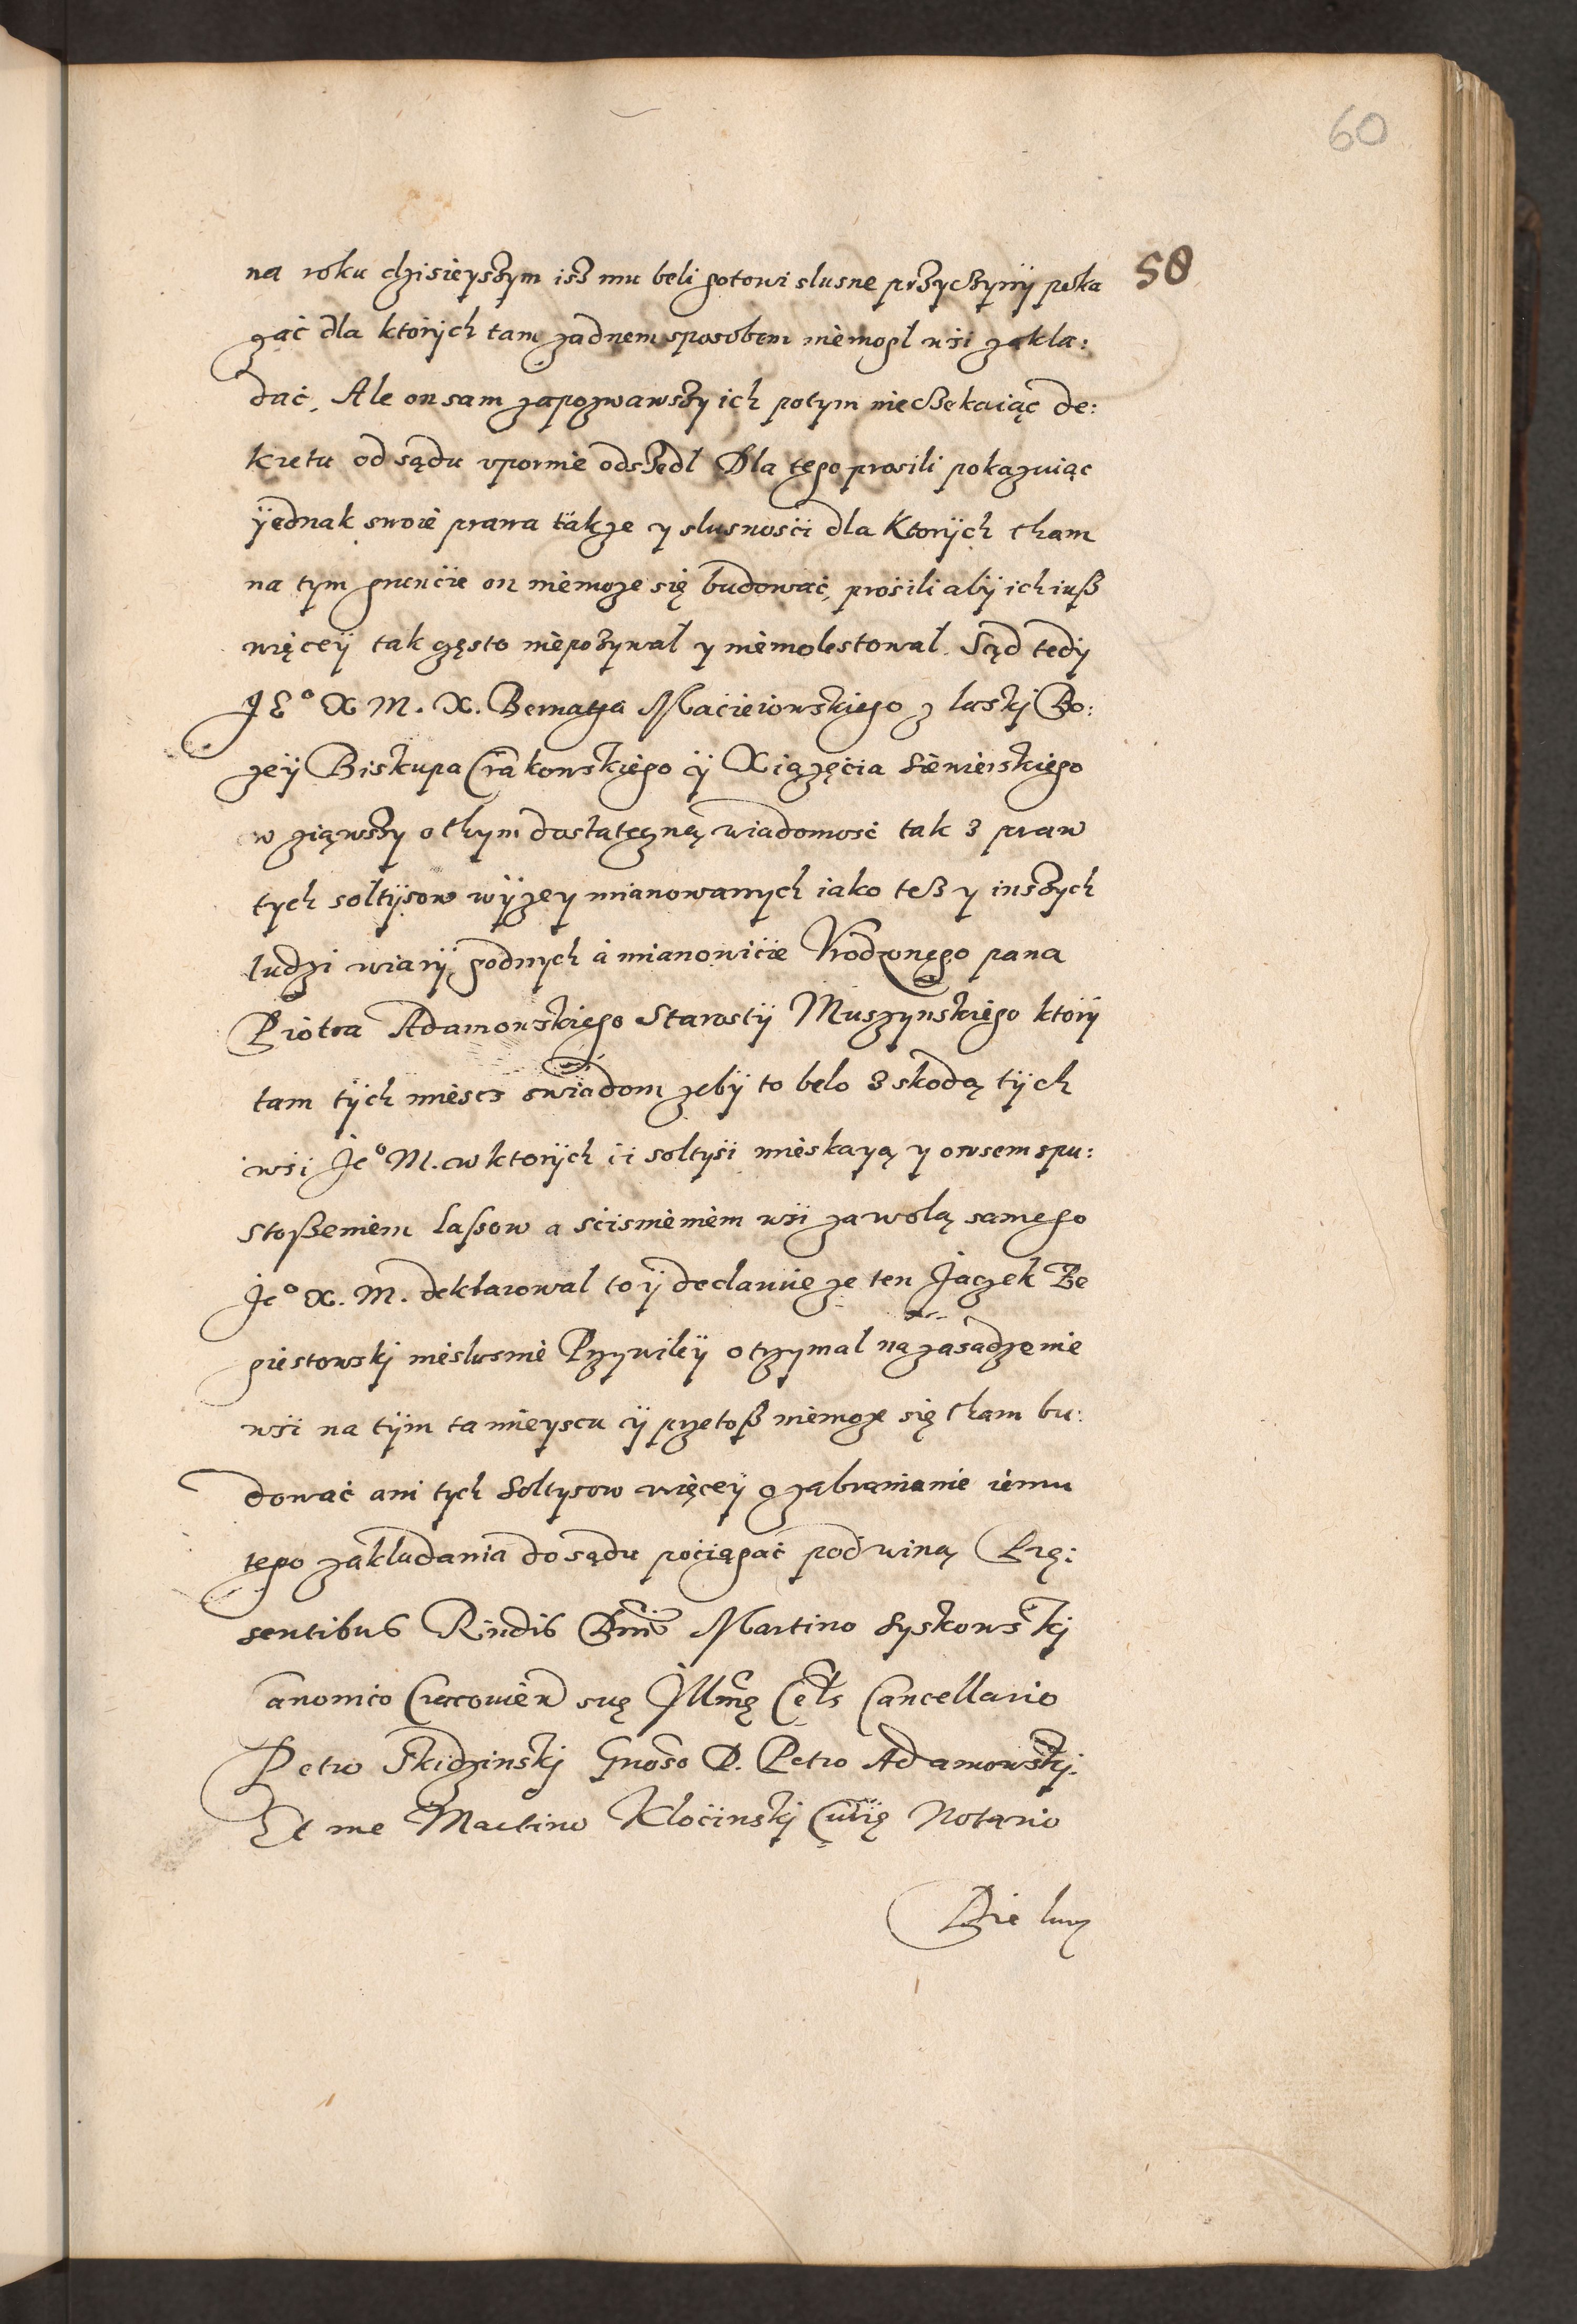 60
58
na roku dzisieyszym isz mu beli gotowi slusne prziczyny poka
zać dla ktorych tam zadnem sposobem niemogl wsi zakla:
dać. Ale on sam zapozwawszy ich potym nieczekaiąc de:
kretu od sądu vpornie odszedl Dla tego prosili pokazuiąc
ÿednak swoie prawa także y slusnosci dla Ktorÿch tham
na tym gruncie on niemoze się budować, prosili abÿ ich iuß
więceÿ tak gęsto niepozywal y niemolestowal. Sąd tedÿ
JE° X M. X. Bernatha Macieiowskiego z laski Bo:
zeÿ Biskupa Crakowskiego ÿ Xiązęcia Siewierskiego
wziąwszy o thym dostateczną wiadomosć tak z praw
tych soltÿsow wÿzey mianowanych iako teß y inszych
ludzi wiarÿ godnych a mianowicie Vrodzonego pana
Piotra Adamowskiego Starostÿ Muszynskiego ktorÿ
tam tÿch miesc swiadom zebÿ to belo z skodą tÿch
wsi Je° M. w ktorÿch ci soltysi mieskayą y owsem spu:
stoßeniem lassow a scisnieniem wsi za wolą samego
Je° X. M. deklarowal to ÿ declaruie ze ten Jaczek Ze
giestowskj nieslusnie Przywileÿ otrzymal na zasadzenie
wsi na tÿm ta mieyscu ÿ przetoß niemoze się tham bu:
dować ani tych Soltysow więceÿ o zabranianie iemu
tego zakladania do sądu pociągać pod winą Prę:
sentibus Rindis Dnis Martino Syskowskj
Canonico Cracovien suę Illmę Cels Cancellario
Petro Skidzinskj Gnoso D. Petro Adamowskj.
Et me Martino Kłocinskj Curię Notario
Die lunę